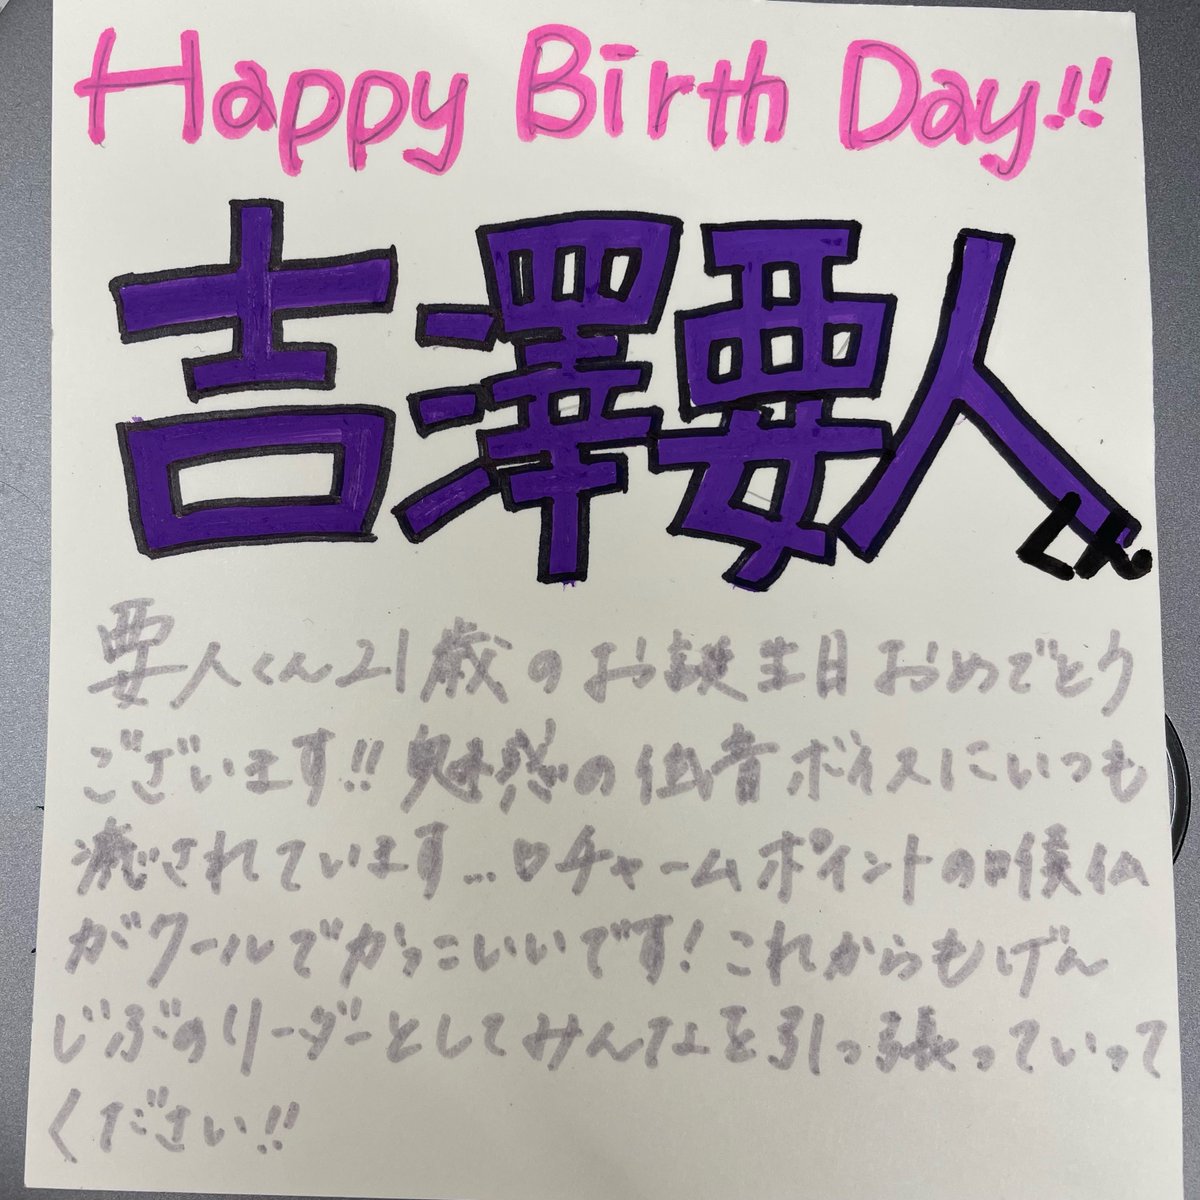 Happy Birth Day!!
吉澤要人くん
要人くん21歳のお誕生日おめでとう
ございます!! 魅惑の低音ボイスにいつも
癒されています…♡チャームポイントの喉仏
がクールでかっこいいです！これからもげん
じぶのリーダーとしてみんなを引っ張っていって
ください!!